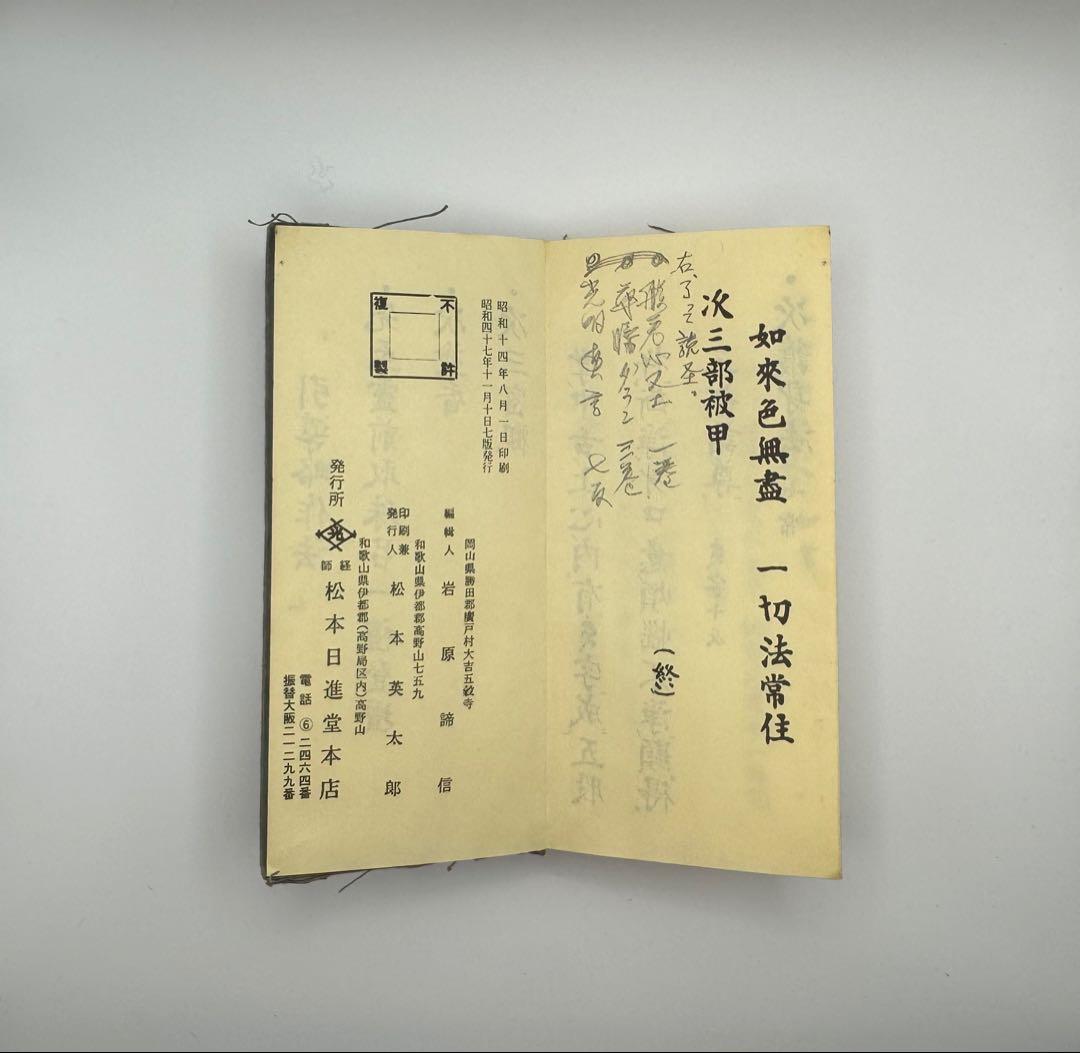 如來色無盡 一切法常住
次三部被甲
(終)
一卷
三卷
光明真言 七反
昭和十四年八月一日印刷
昭和四十七年十一月十日七版発行
不許複製
岡山県勝田郡廣戸村大吉五穀寺
編輯人 岩原諦信
和歌山県伊都郡高野山七五九
印刷兼発行人 松本英太郎
和歌山県伊都郡(高野局区内)高野山
発行所 経師 松本日進堂本店
電話⑥二四六四番
振替大阪二一二九九番